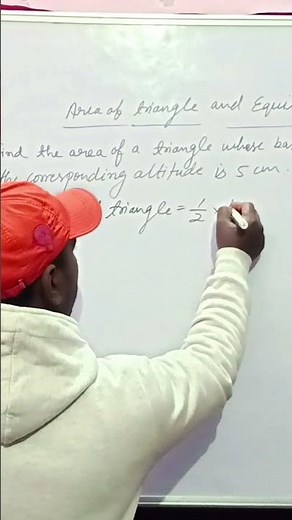 Area of triangle and Equi
find the area of a triangle whose ba
the corresponding altitude is 5 cm.
triangle = 1/2 ×